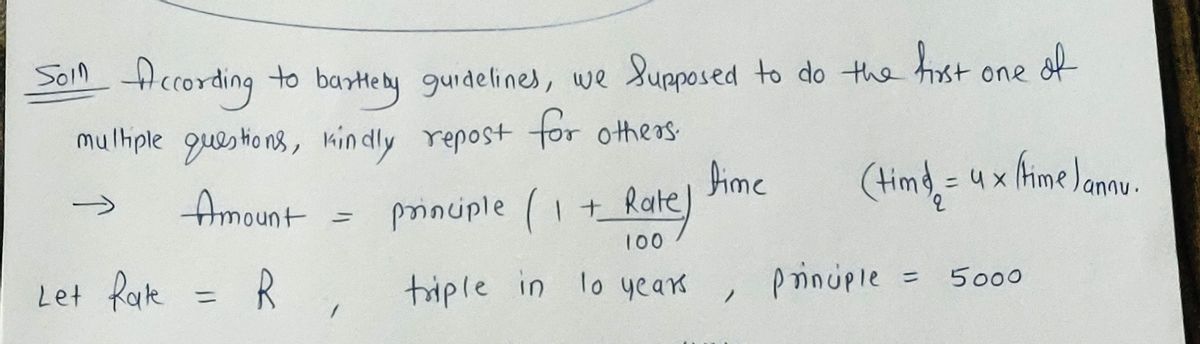 Soln According to bartleby guidelines, we Supposed to do the first one of
multiple questions, kindly repost for others.
→ Amount = principle ( 1 + Rate/100 )^time (time)q = 4 x (time)annu.
Let Rate = R , triple in 10 years , principle = 5000